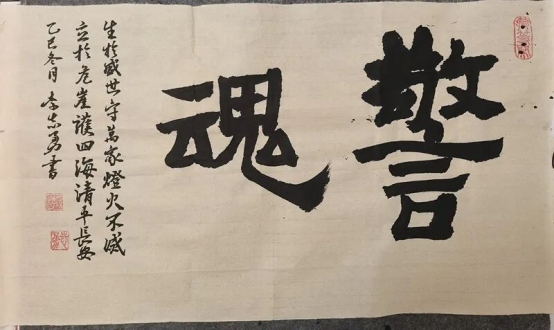 警魂
生於盛世守萬家燈火不滅
立於危崖護四海清平長安
乙巳冬月 李志勇書